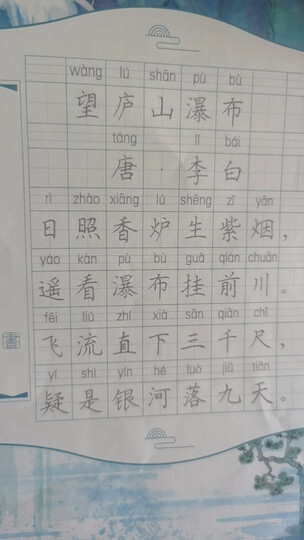 wàng lú shān pù bù
望庐山瀑布
táng lǐ bái
唐·李白
rì zhào xiāng lú shēng zǐ yān
日照香炉生紫烟，
yáo kàn pù bù guà qián chuān
遥看瀑布挂前川。
fēi liú zhí xià sān qiān chǐ
飞流直下三千尺，
yí shì yín hé luò jiǔ tiān
疑是银河落九天。
書